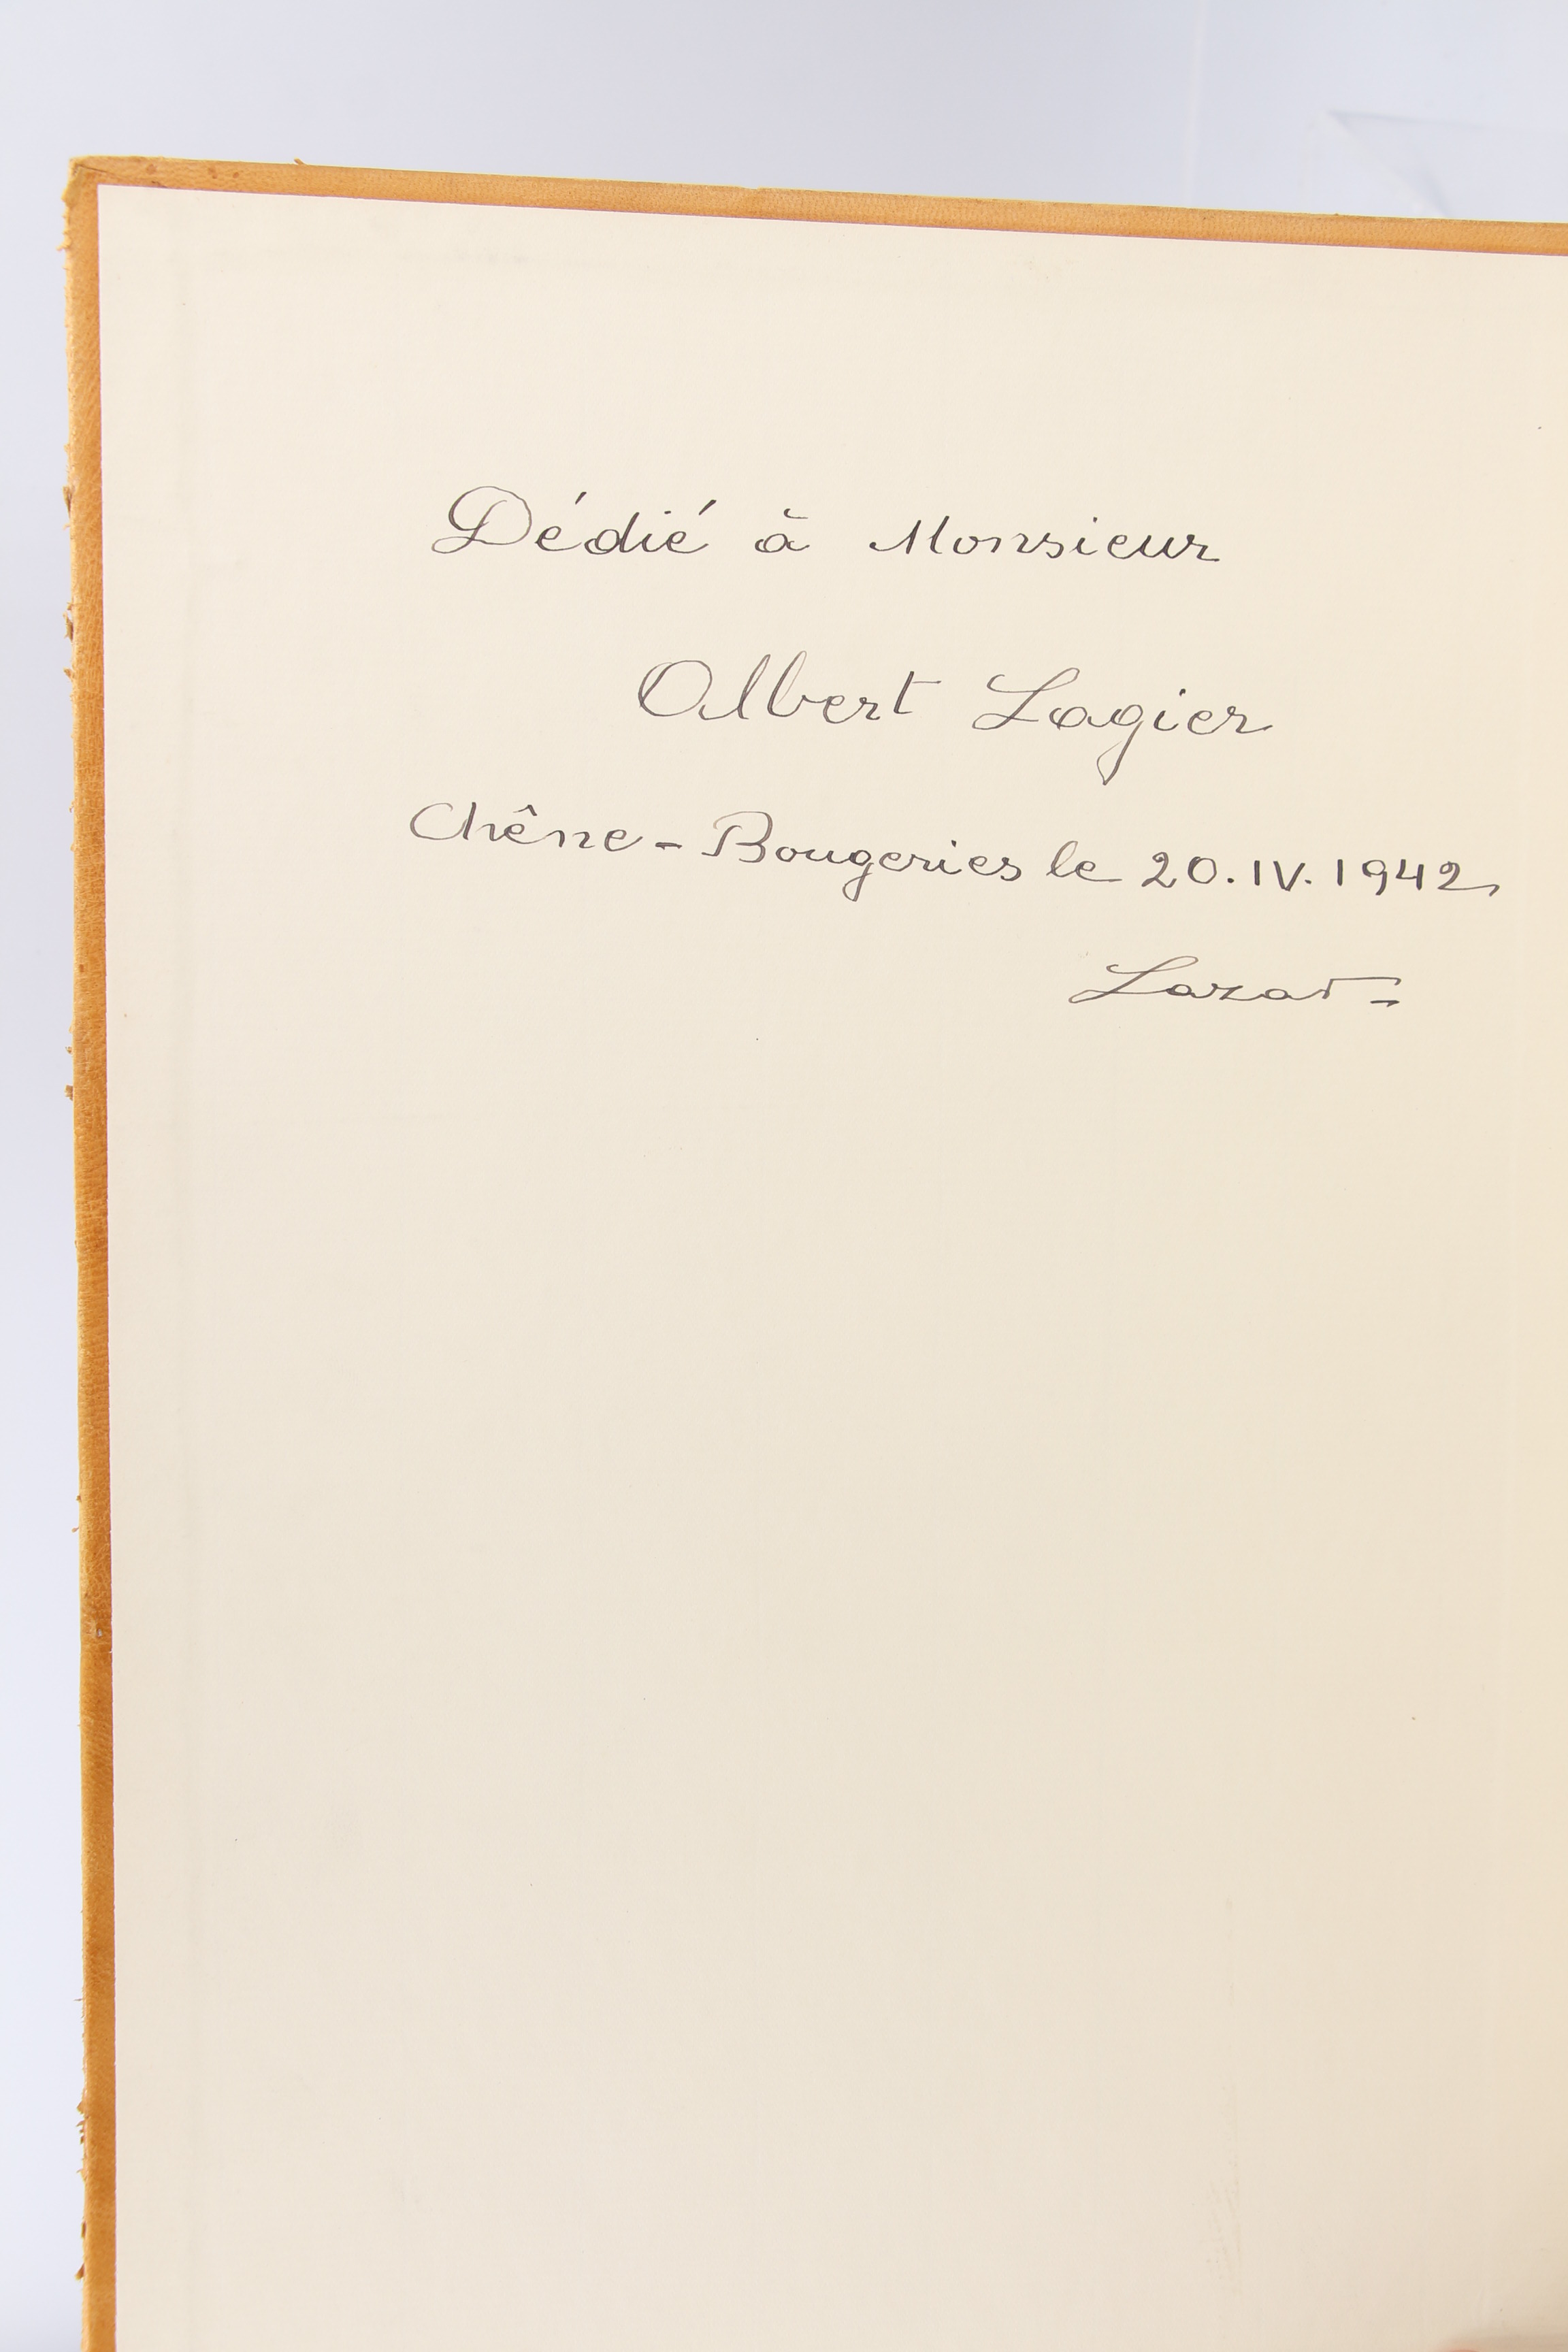 Dédié à Monsieur
Albert Lagier
Chêne-Bougeries le 20.IV.1942